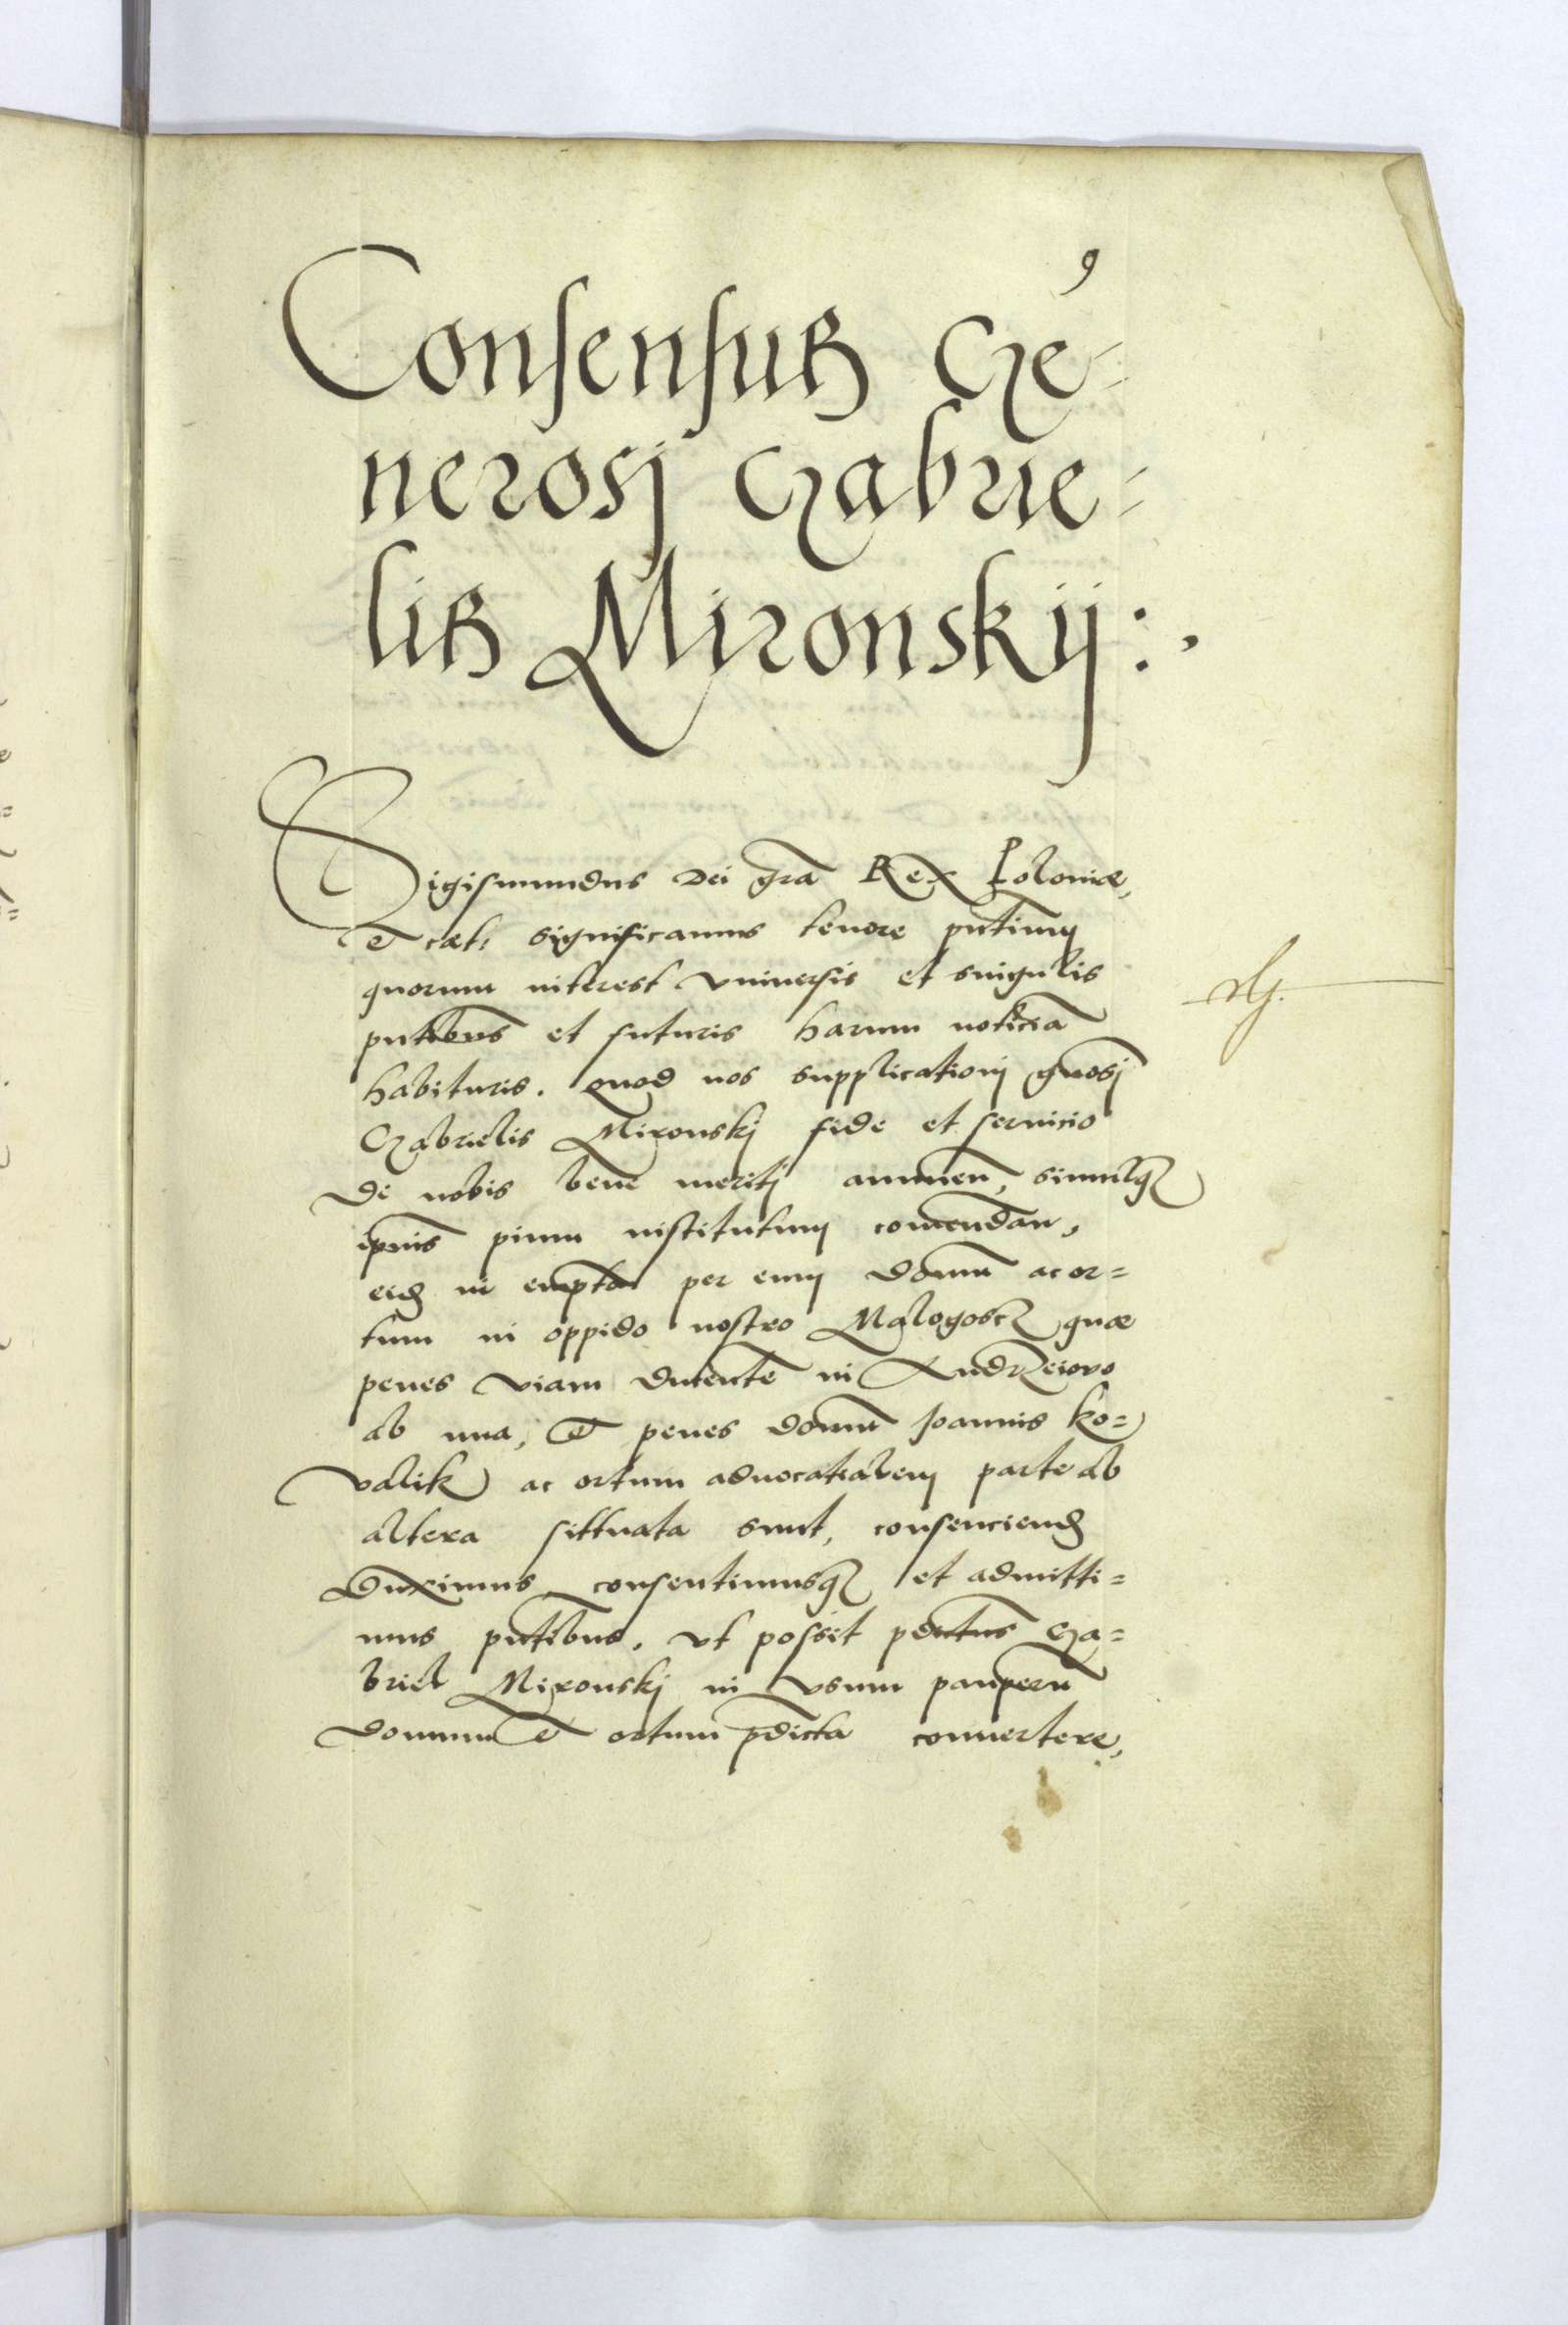 9
Consensus Ge-
nerosj Gabrie-
lis Mironskij:,
Sigismundus Dei gra̅ Rex Poloniæ,
et cæt: significamus tenore pn̅tium
quorum interest vniuersis et singulis
pn̅tibus et futuris harum noticia̅
habituris. Quod nos supplicationj gn̅osj
Gabrielis Mironskj fide et seruicio
de nobis bene meritj annuen̅, simulq3
ipsius pium institutum com̅endan̅,
eid3 in empta̅ per eum domu̅ ac or=
tum in oppido nostro Malogoscz quæ
penes viam ducente̅ in Andrzeiovo
ab una, et penes domu̅ Joannis Ko=
valik ac ortum aduocatialem parte ab
altera sittuata sunt, consenciend3
Duximus consentimusq3 et admitti=
mus pn̅tibus. vt possit pdictus Ga=
briel Mironskj in vsum pauperu̅
domum et ortum p̅dicta conuertere,